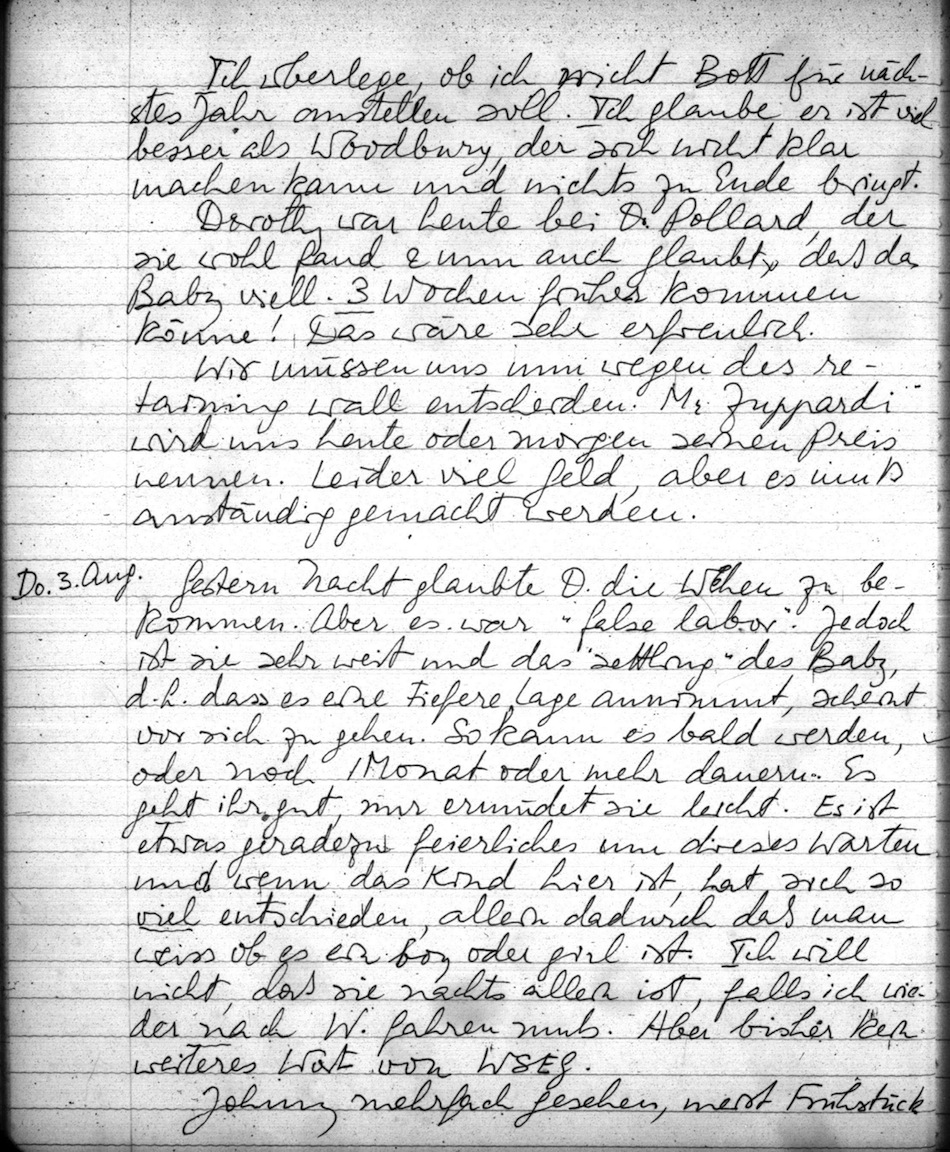 Ich überlege, ob ich nicht Bott für näch-
stes Jahr anstellen soll. Ich glaube, er ist viel
besser als Woodbury, der sich nicht klar
machen kann und nichts zu Ende bringt.
Dorothy war heute bei D. Pollard, der
sie wohl fand & nun auch glaubt, daß das
Baby viell. 3 Wochen früher kommen
könne! Das wäre sehr erfreulich.
Wir müssen uns nun wegen des re-
taining wall entscheiden. Mr Zuppardi
wird uns heute oder morgen seinen Preis
nennen. Leider viel Geld, aber es muß
anständig gemacht werden.
Do. 3. Aug. Gestern Nacht glaubte D. die Wehen zu be-
kommen. Aber es war "false labor". Jedoch
ist sie sehr weit und das "settling" des Baby,
d.h. dass es eine tiefere Lage annimmt, scheint
vor sich zu gehen. So kann es bald werden,
oder noch 1 Monat oder mehr dauern. Es
geht ihr gut, nur ermüdet sie leicht. Es ist
etwas geradezu feierliches um dieses Warten
und wenn das Kind hier ist, hat sich so
viel entschieden, allein dadurch daß man
weiss ob es ein boy oder girl ist. Ich will
nicht, daß sie nachts allein ist, falls ich wie-
der nach W. fahren muß. Aber bisher kein
weiteres Wort von WSEG.
Johnny mehrfach gesehen, meist Frühstück